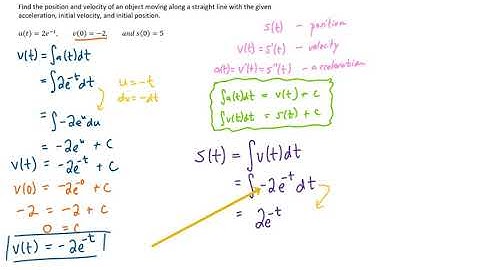 Find the position and velocity of an object moving along a straight line with the given
acceleration, initial velocity, and initial position.
a(t) = 2e⁻ᵗ, v(0) = −2, and s(0) = 5
v(t) = ∫a(t)dt
= ∫2e⁻ᵗdt
u = -t
du = -dt
= ∫-2eᵘdu
= -2eᵘ + C
v(t) = -2e⁻ᵗ + C
v(0) = -2e⁻⁰ + C
-2 = -2 + C
0 = C
v(t) = -2e⁻ᵗ
s(t) - position
v(t) = s'(t) - velocity
a(t) = v'(t) = s''(t) - acceleration
∫a(t)dt = v(t) + C
∫v(t)dt = s(t) + C
s(t) = ∫v(t)dt
= ∫-2e⁻ᵗdt
= 2e⁻ᵗ